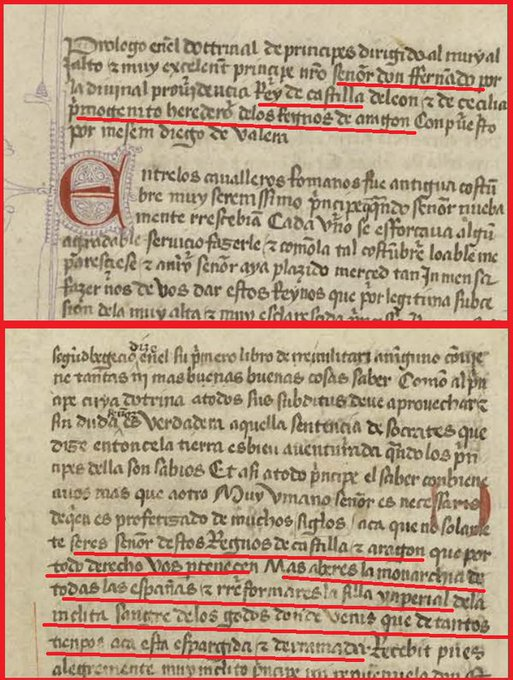 Prologo enel dottrinal de principes dirigido al muy al
/alto ⁊ muy excelent principe nr̃o senor don ffernãdo por
la diuinal prouidencia Rey de castilla deleon ⁊ de cecilia
p̃mogenito heredero delos Regnos de aragon Conpuesto
por mosem diego de valera
Entrelos caualleros Romanos fue antigua costũ
bre muy serenissimo p̃ncipe q̃ q̃ndo senor nueba
mente rrescebian Cada vno se esforcaua algũ
agradable seruicio fazerle ⁊ comola tal costũbre loable me
paresciese ⁊ a my senor aya plazido merced tan In mensa
fazer nos de vos dar estos Reynos que por legitima subce
sion dela muy alta ⁊ muy esclarescida
segũd begecio dize enel su p̃mero libro de rre militari a ninguno cõuie
ne tantas ni mas buenas buenas cosas saber Como al p̃n
cipe cuya dotrina a todos sus subditus deue aprouechar ⁊
sin duda es verdadera aquella sentencia de socrates que
dize entonce la tierra es bien auenturada q̃ndo los p̃n
cipes della son sabios Et asi a todo p̃ncipe el saber conbiene
a uos mas que a otro Muy vmano senor es necessario
de q̃en es profetizado de muchos siglos aca que no solame
te seres senor destos Regnos de castilla ⁊ aragon que por
todo derecho vos ptenecen Mas aberes la monarchia de
todas las españas ⁊ rreformares la silla ynperial dela
inclita sangre delos godos donde venis que de tantos
tienpos aca esta esparzida ⁊ derramada Recebit pues
alegremente muy inclito p̃ncipe